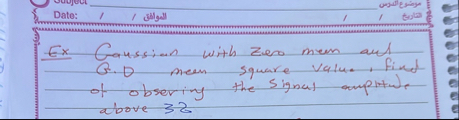 Subject موضوع الدرس
Date: / / الموافق / / التاريخ
Ex Gaussian with zero mean and
mean square value, find
of observing the signal amplitude
above